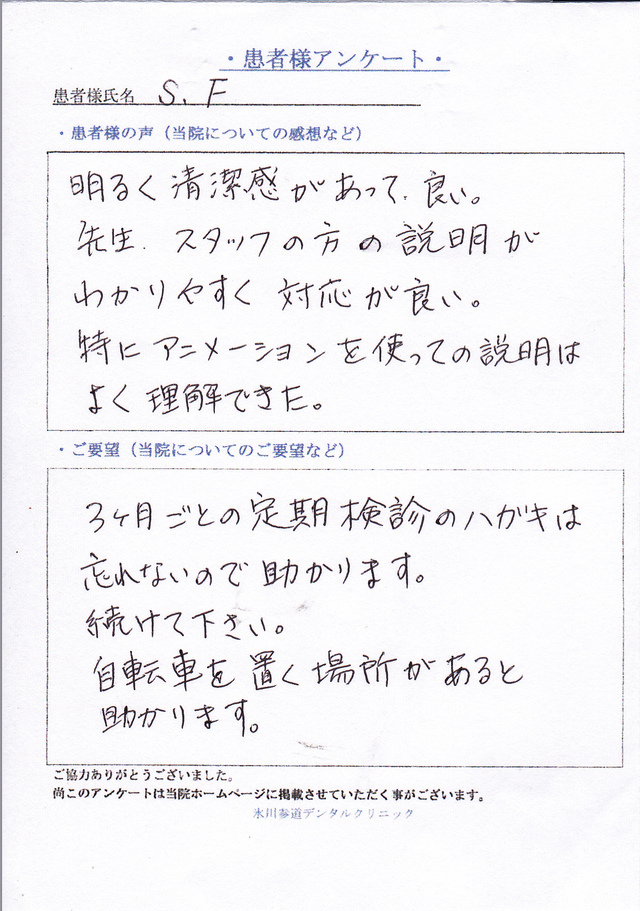 ・患者様アンケート・
患者様氏名 S. F
・患者様の声（当院についての感想など）
明るく清潔感があって、良い。
先生、スタッフの方の説明が
わかりやすく対応が良い。
特にアニメーションを使っての説明は
よく理解できた。
・ご要望（当院についてのご要望など）
3ヶ月ごとの定期検診のハガキは
忘れないので助かります。
続けて下さい。
自転車を置く場所があると
助かります。
ご協力ありがとうございました。
尚このアンケートは当院ホームページに掲載させていただく事がございます。
氷川参道デンタルクリニック